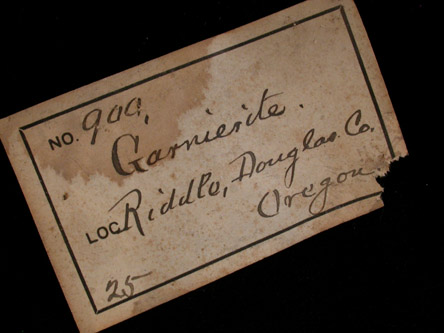 NO. 900.
Garnierite.
LOC Riddle, Douglas Co.
Oregon
25